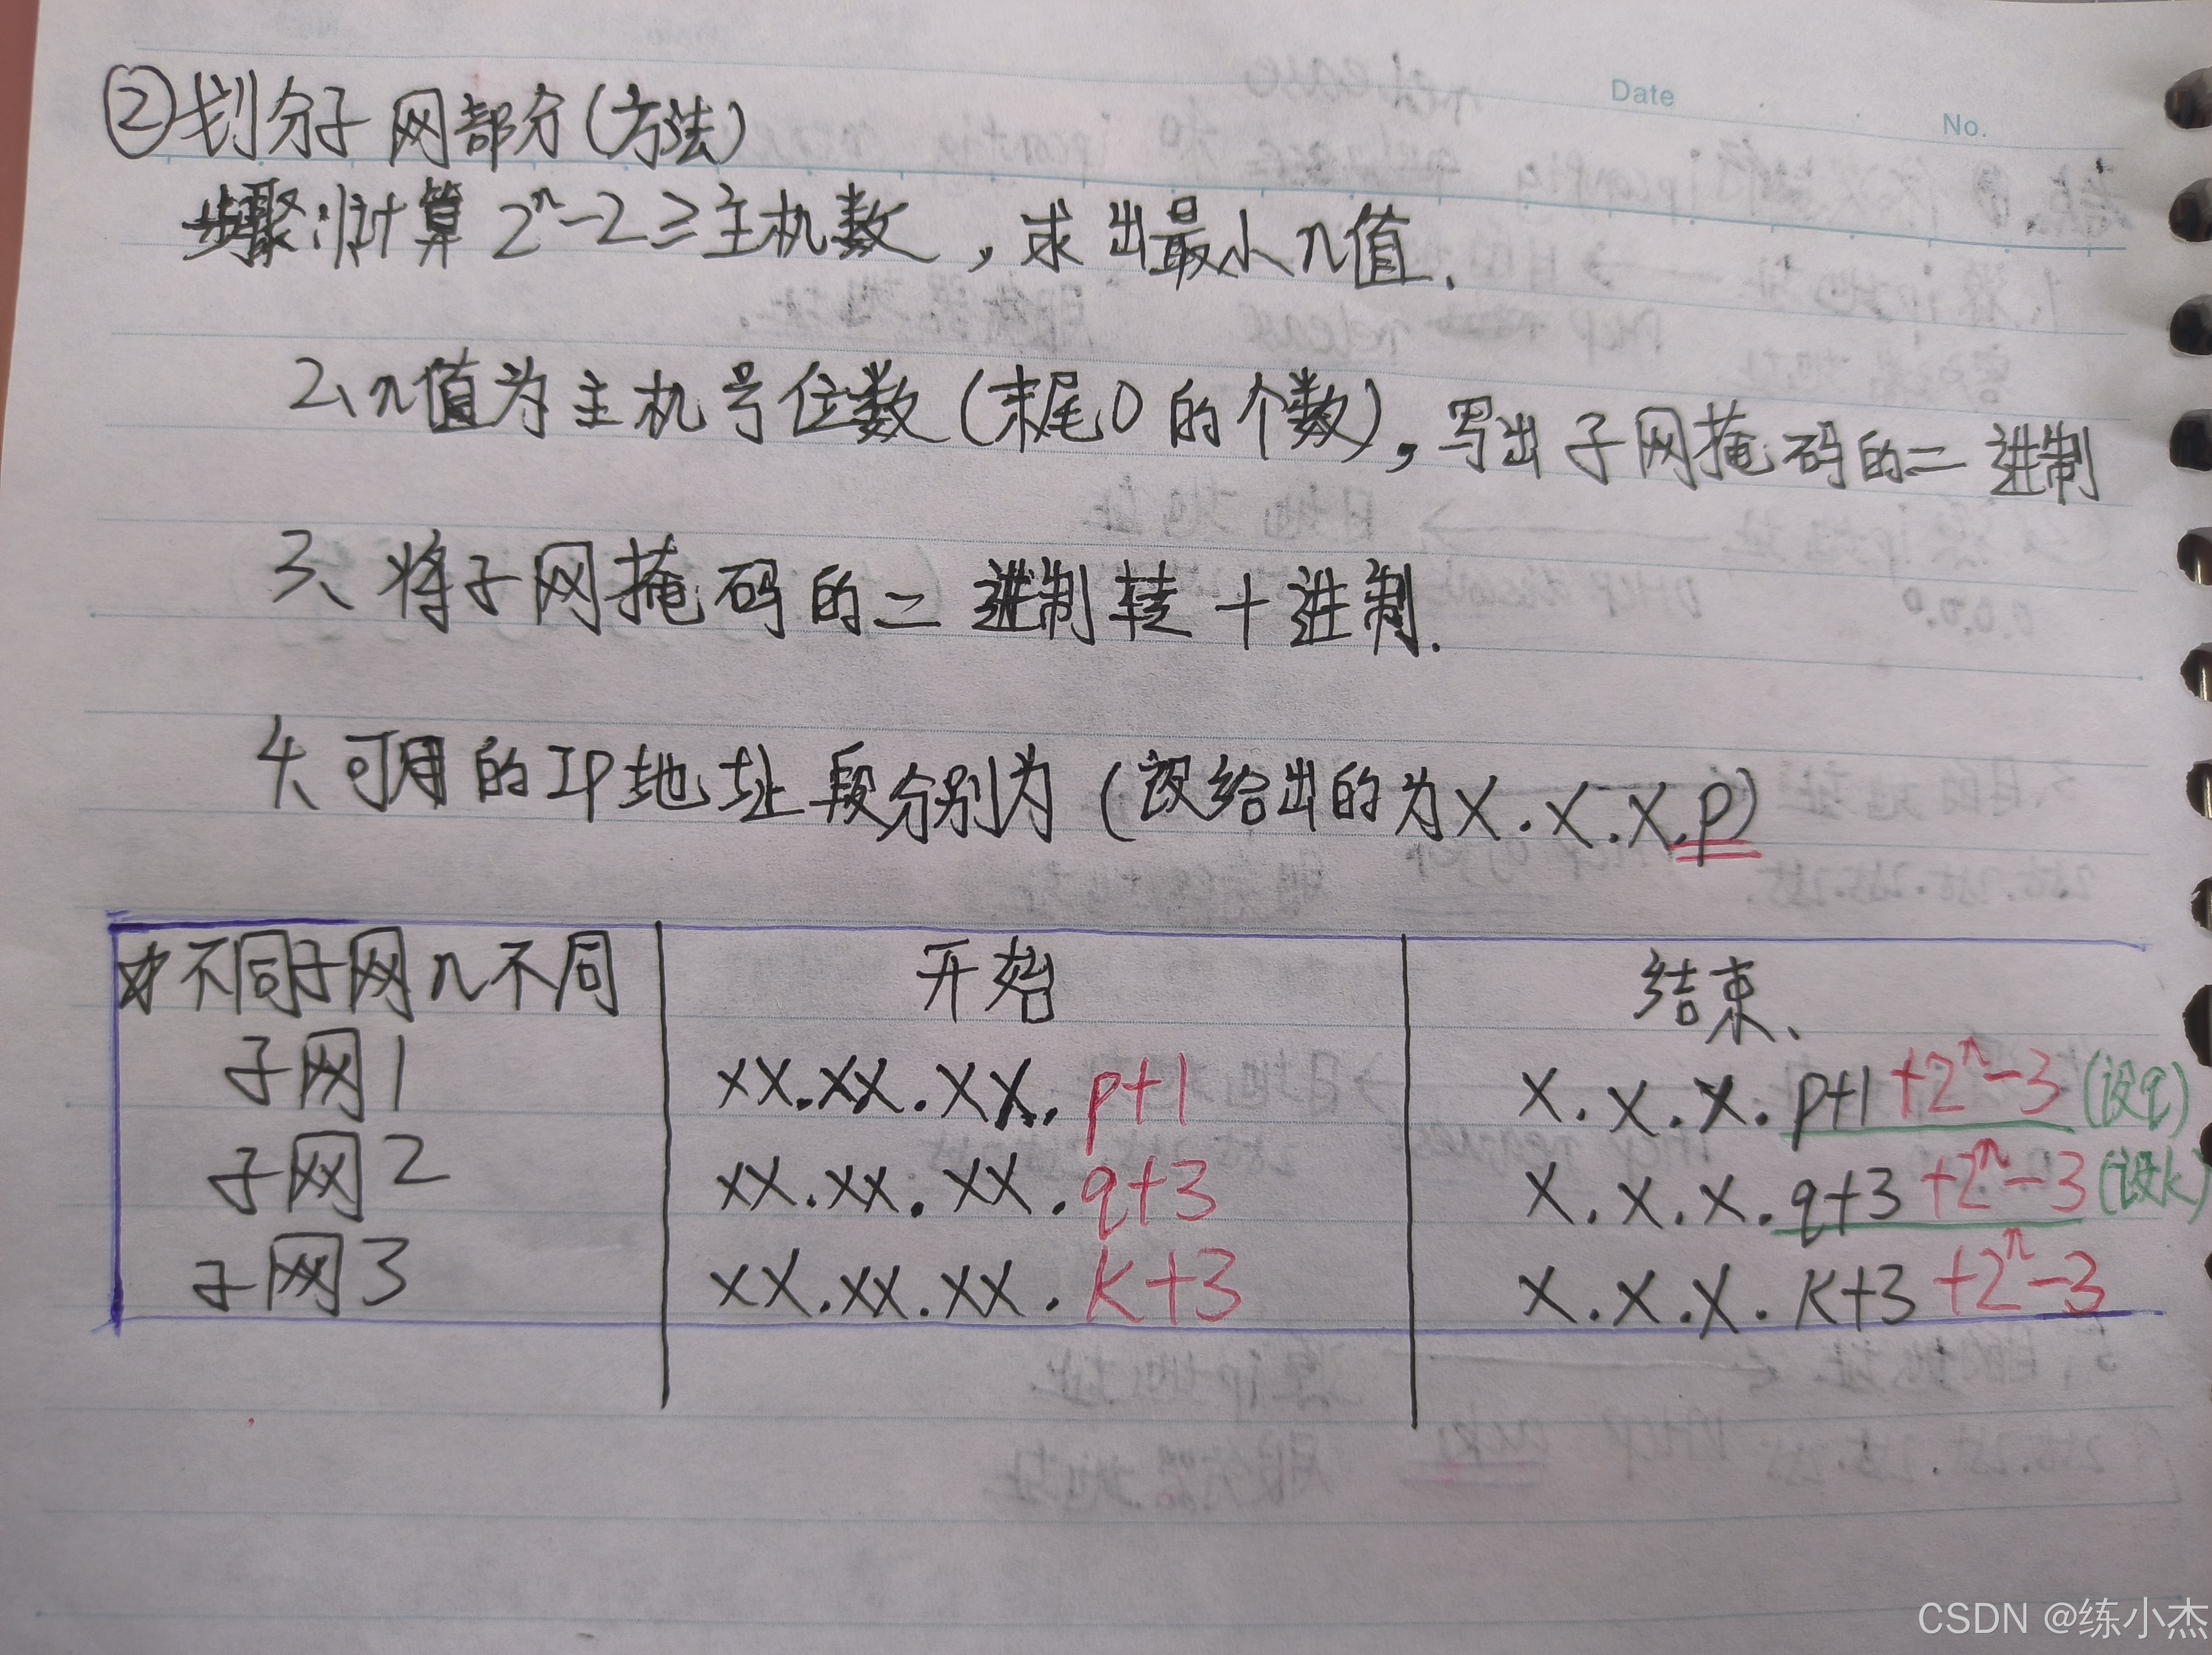 Date
No.
②划分子网部分(方法)
步骤:1、计算 2ⁿ-2≥主机数，求出最小n值.
2、n值为主机号位数(末尾0的个数)，写出子网掩码的二进制
3、将子网掩码的二进制转十进制.
4、可用的IP地址段分别为(设给出的为X.X.X.p)
不同子网n不同 开始 结束、
子网1 XX.XX.XX.p+1 X.X.X.p+1+2ⁿ-3(设q)
子网2 XX.XX.XX.q+3 X.X.X.q+3+2ⁿ-3(设k)
子网3 XX.XX.XX.k+3 X.X.X.k+3+2ⁿ-3
CSDN @练小杰